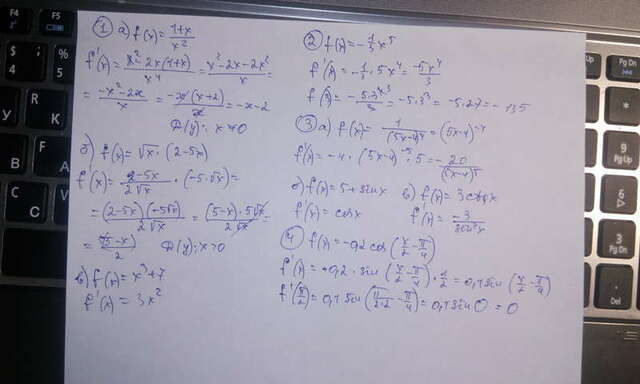 ① а) f(x) = 1+x / x²
f'(x) = x² - 2x(1+x) / x⁴ = x² - 2x - 2x² / x =
= -x² - 2x / x = -x(x+2) / x = -x-2
D(y): x ≠ 0
б) f(x) = √x · (2-5x)
f'(x) = 2-5x / 2√x · (-5√x) =
= (2-5x)(-5√x) / 2√x = (5-x)·5√x / 2√x =
D(y): x > 0
в) f(x) = x³+7
f'(x) = 3x²
② f(x) = -1/3 x⁵
f'(x) = -1/3 · 5x⁴ = -5x⁴ / 3
= -5·3³ = -5·27 = -135
③ а) f(x) = 1 / (5x-4)⁴ = (5x-4)⁻⁴
f'(x) = -4 · (5x-4)⁻⁵ · 5 = -20 / (5x-4)⁵
б) f(x) = 5+sinx в) f(x) = 3ctgx
f'(x) = cosx f'(x) = -3 / sin²x
④ f(x) = -0,2 cos (x/2 - π/4)
f'(x) = +0,2 · sin (x/2 - π/4) · 1/2 = 0,1 sin (x/2 - π/4)
f'(π/2) = 0,1 sin (π/2·2 - π/4) = 0,1 sin 0 = 0
F4
F5
$
4
%
5
R
К
Е
F
Pg Up
Pg Dn
*
9
Pg Up
6
3
Pg Dn